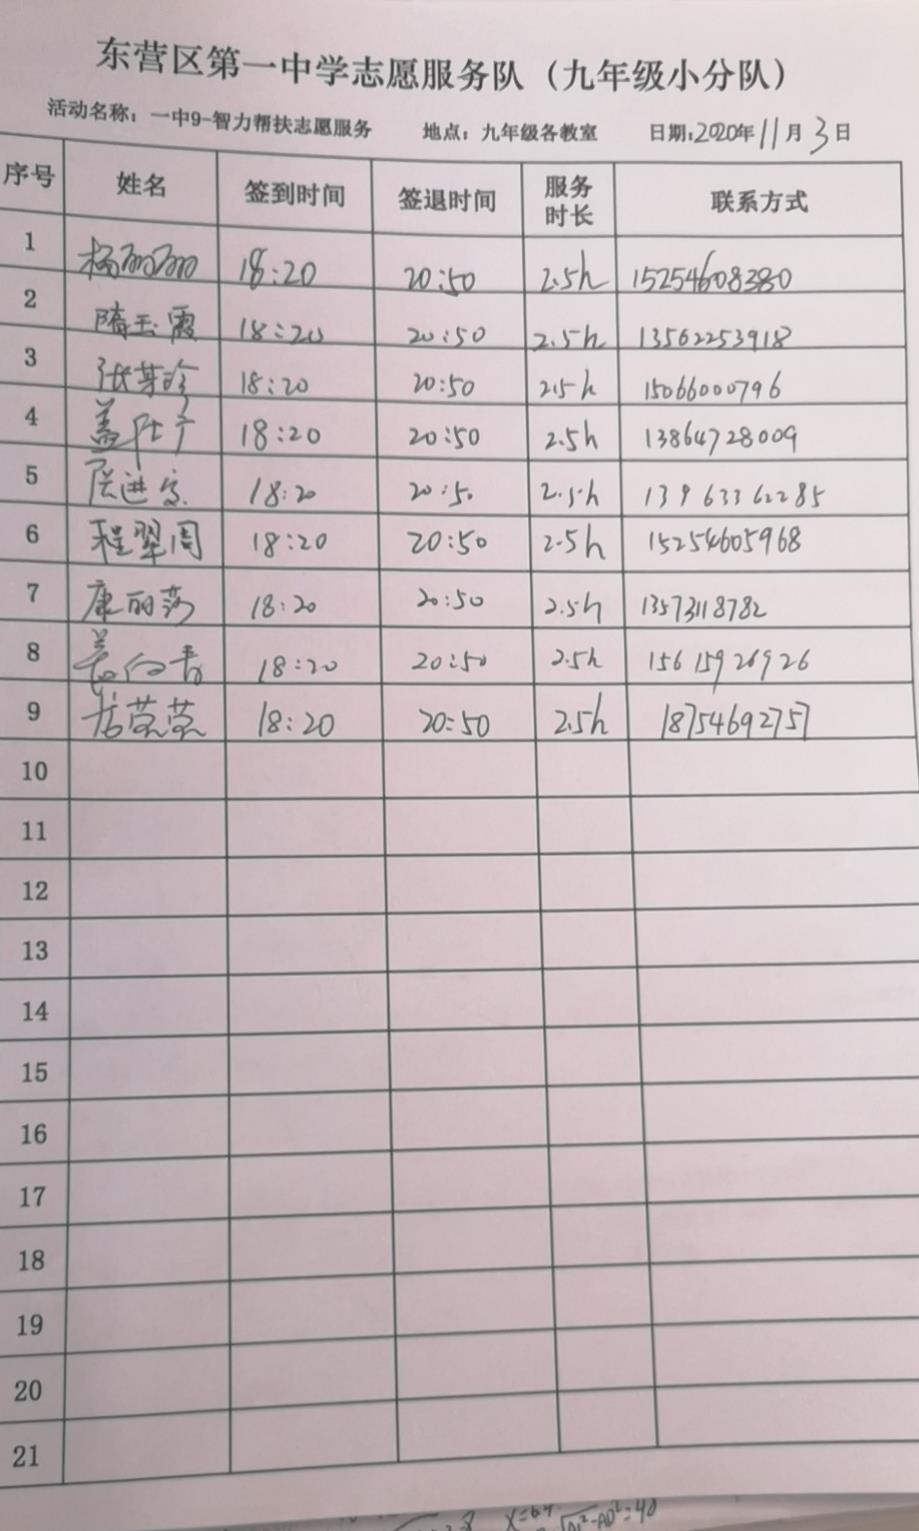 东营区第一中学志愿服务队（九年级小分队）
活动名称：一中9-智力帮扶志愿服务 地点：九年级各教室 日期：2020年11月3日
序号 姓名 签到时间 签退时间 服务时长 联系方式
1 杨丽丽 18:20 20:50 2.5h 15254608380
2 隋玉霞 18:20 20:50 2.5h 13562253918
3 张芳玲 18:20 20:50 2.5h 15066000796
4 18:20 20:50 2.5h 13864728009
5 18:20 20:50 2.5h 13963362285
6 程翠周 18:20 20:50 2.5h 15254605968
7 康丽莎 18:20 20:50 2.5h 13573118782
8 18:20 20:50 2.5h 15615926926
9 18:20 20:50 2.5h 18754692757
10
11
12
13
14
15
16
17
18
19
20
21